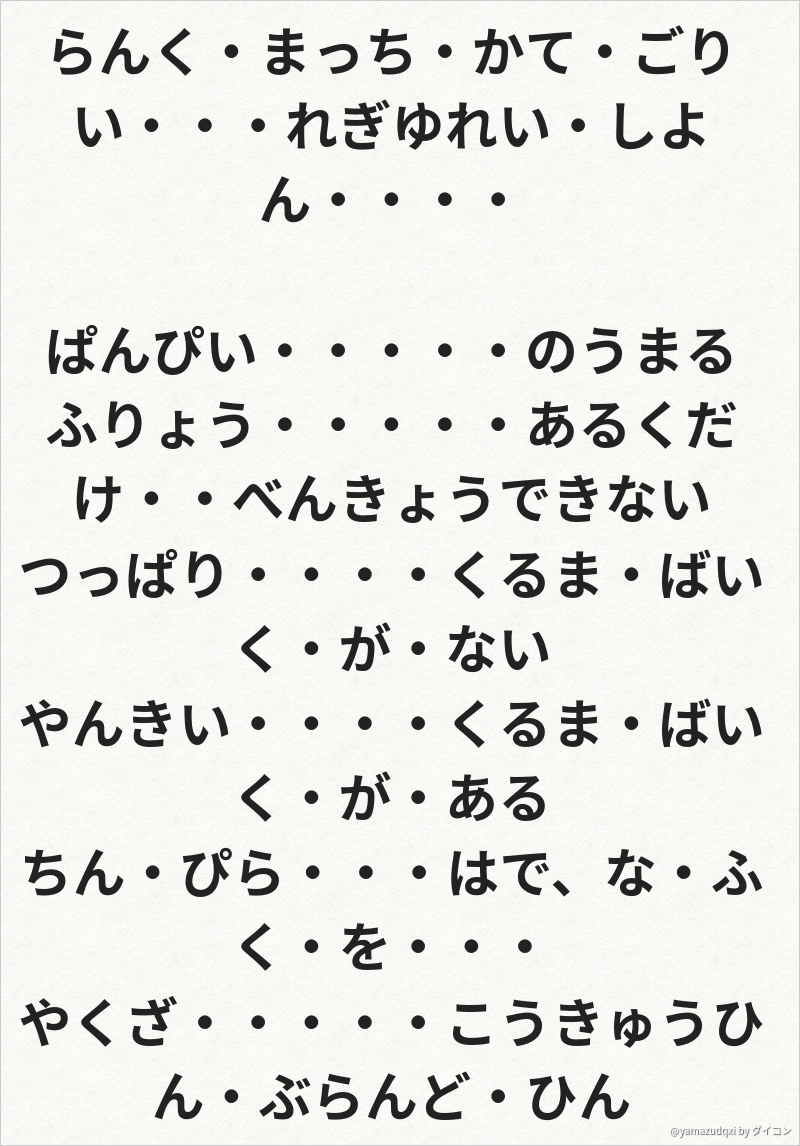 らんく・まっち・かて・ごり
い・・・れぎゆれい・しよ
ん・・・・
ぱんぴい・・・・・のうまる
ふりょう・・・・・あるくだ
け・・べんきょうできない
つっぱり・・・・くるま・ばい
く・が・ない
やんきい・・・・くるま・ばい
く・が・ある
ちん・ぴら・・・はで、な・ふ
く・を・・・
やくざ・・・・・こうきゅうひ
ん・ぶらんど・ひん
@yamazudqxi by ダイコン